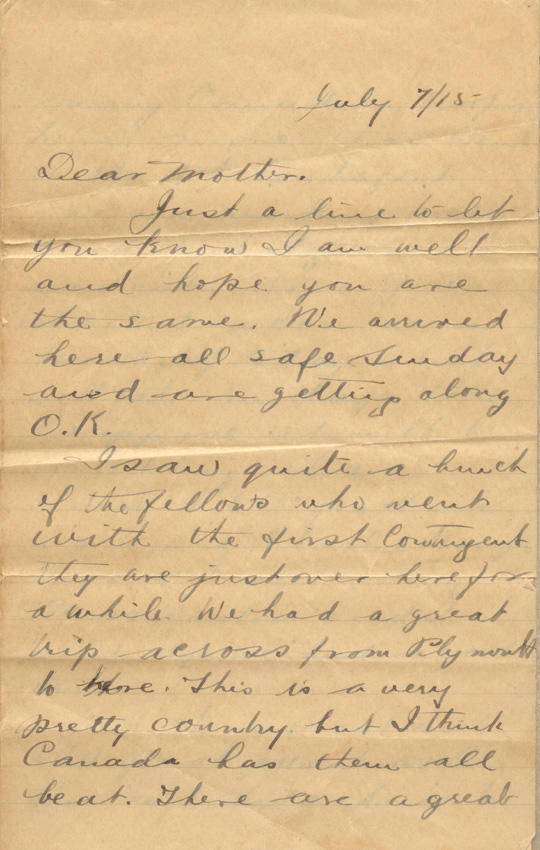 July 7/15
Dear Mother.
Just a line to let
you know I am well
and hope you are
the same. We arrived
here all safe Sunday
and are getting along
O.K.
I saw quite a bunch
of the fellows who went
with the first Contingent
they are just over here for
a while. We had a great
trip across from Plymouth
to here. This is a very
pretty country but I think
Canada has them all
beat. There are a great